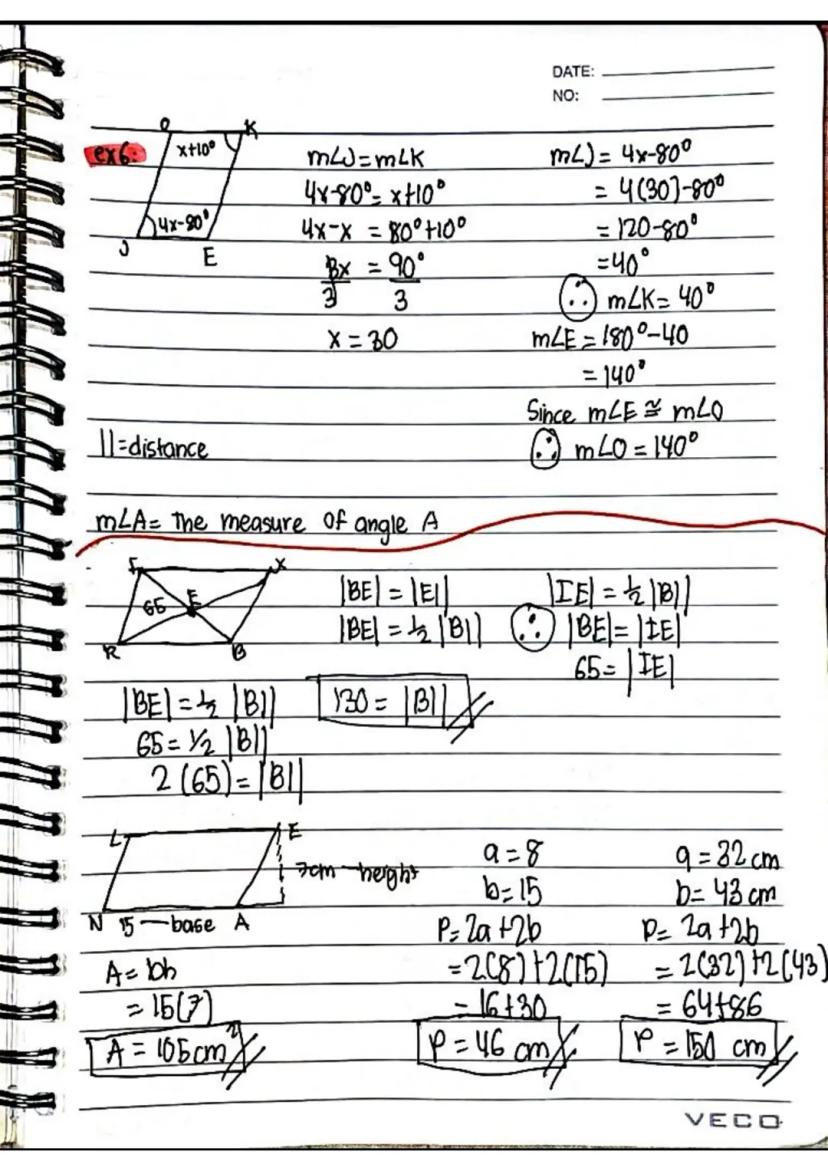 DATE:
NO:
ex 6:
O K
x+10°
4x-80°
J E
m∠J=m∠K
4x-80°=x+10°
4x-x = 80°+10°
3x = 90°
3 3
x = 30
m∠J = 4x-80°
= 4(30)-80°
= 120-80°
=40°
∴ m∠K= 40°
m∠E = 180°-40
= 140°
Since m∠E ≅ m∠O
∴ m∠O = 140°
||=distance
m∠A= the measure of angle A
I X
65 E
R B
|BE| = |EI|
|BE| = ½ |BI|
|IE| = ½ |BI|
∴ |BE|= |IE|
65= |IE|
|BE| = ½ |BI|
65= 1/2 |BI|
2 (65) = |BI|
130 = |BI|
L E
7cm — height
N 15 — base A
A = bh
= 15(7)
A = 105cm²
a = 8
b = 15
P= 2a +2b
=2(8)+2(15)
= 16+30
P = 46 cm
a = 32 cm
b= 43 cm
P= 2a +2b
= 2(32)+2(43)
= 64+86
P = 150 cm
VECO